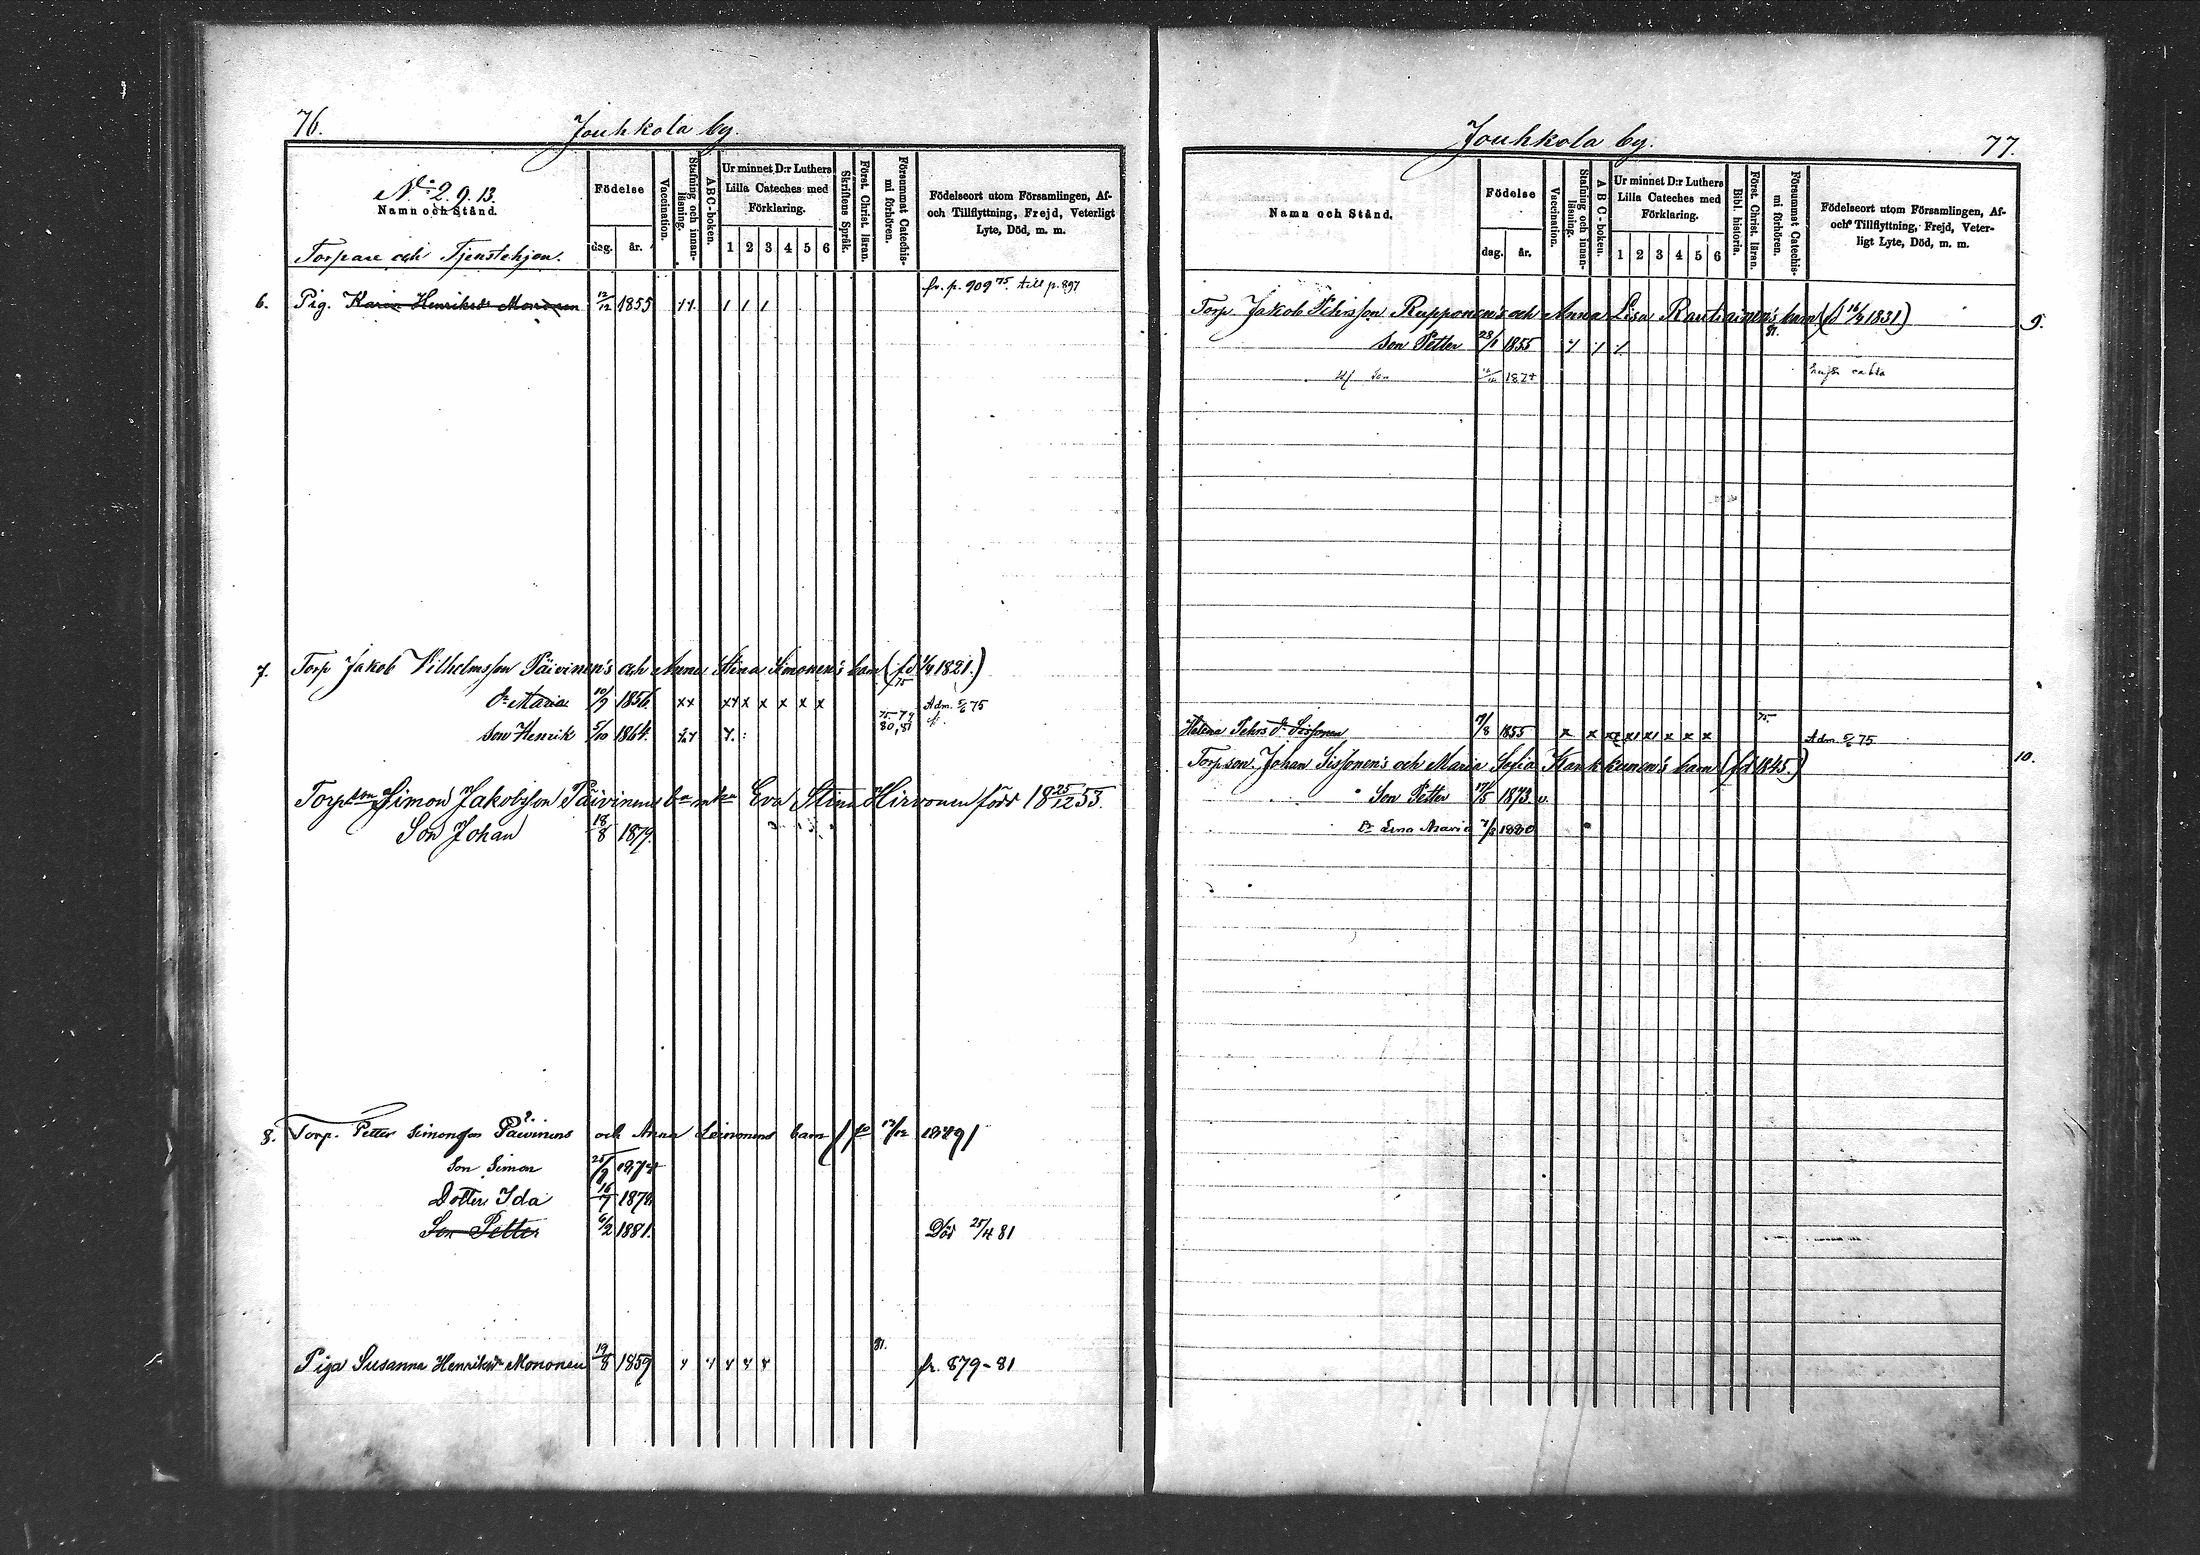 76.
Jouhkola by.
No: 2. 9. 13.
Namn och Stånd.
Torpare och Tjenstehjon.
Födelse
dag. år.
Vaccination.
Stafning och innan-läsning.
ABC-boken.
Ur minnet D:r Luthers
Lilla Cateches med
Förklaring.
1 2 3 4 5 6
Skriftens Språk.
Först. Christ. läran.
Försummat Catechis-mi förhören.
Födelseort utom Församlingen, Af-
och Tillflyttning, Frejd, Veterligt
Lyte, Död, m. m.
fr. p. 909 75. till p. 897
6. Pig. Karin Henriksdr Mononen 12/12 1855
7. Torp Jakob Vilhelmsson Päivinen's och Anna Stina Simonen's barn (fd 1/4 1821.)
Dr Maria 10/9 1856. xx xx x x x x x 75 Adm. 5/6 75
Son Henrik 5/10 1864. 75-79 80,81
Torpson Simon Jakobsson Päivinens barn Eva Stina Hirvonen född 18 25/12 53.
Son Johan 18/8 1879.
8. Torp. Petter Simonsson Päivinens och Anna Leinonens barn (fd 12/12 1849)
Son Simon 25/9 1874
Dotter Ida 16/7 1878
Son Petter 6/2 1881. Död 25/4 81
81.
Piga Susanna Henriksdr Mononen 19/8 1859 fr. 879-81
Jouhkola by.
77.
Namn och Stånd.
Födelse
dag. år.
Vaccination.
Stafning och innan-läsning.
ABC-boken.
Ur minnet D:r Luthers
Lilla Cateches med
Förklaring.
1 2 3 4 5 6
Bibl. historia.
Först. Christ. läran.
Försummat Catechis-mi förhören.
Födelseort utom Församlingen, Af-
och Tillflyttning, Frejd, Veter-
ligt Lyte, Död, m. m.
Torp. Jakob Pehrsson Rupponen's och Anna Lisa Rautiainen's barn (fd 16/4 1831) 9.
Son Petter 23/1 1855 81.
Son 12/12 1874
Helena Pehrs dr Sissonen 17/8 1855 x x x x x 75. Adm. 5/6 75
Torpson. Johan Sissonen's och Maria Sofia Kankkunen's barn (fd 1845.) 10.
Son Petter 17/5 1873 v.
Dr Lena Maria 7/2 1880